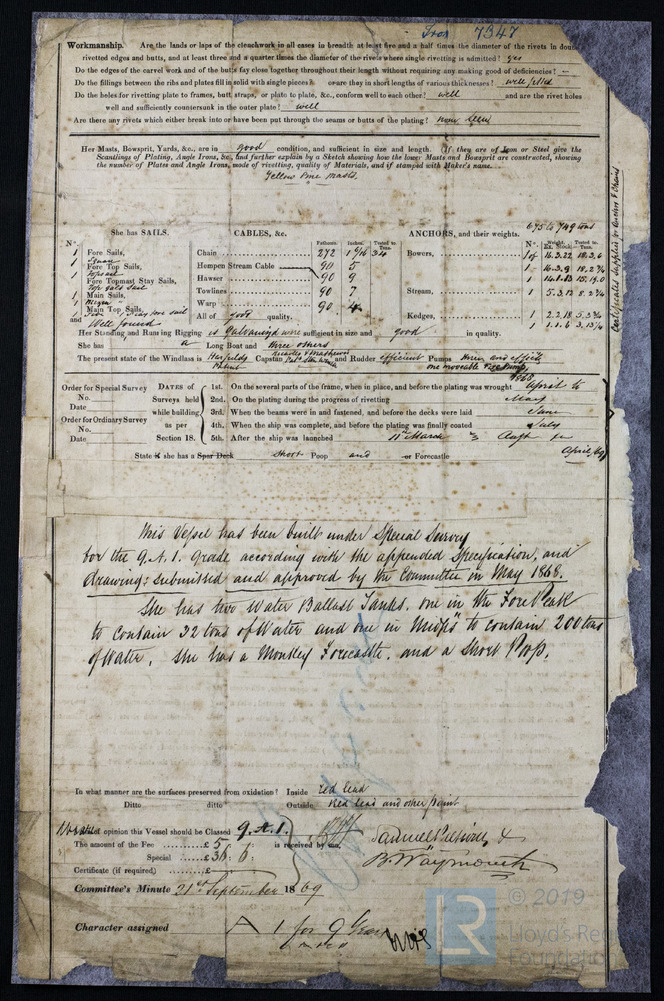 Iron 7347
Workmanship. Are the lands or laps of the clenchwork in all cases in breadth at least five and a half times the diameter of the rivets in double
rivetted edges and butts, and at least three and a quarter times the diameter of the rivets where single rivetting is admitted? yes
Do the edges of the carvel work and of the butts fay close together throughout their length without requiring any making good of deficiencies? –
Do the fillings between the ribs and plates fill in solid with single pieces? or are they in short lengths of various thicknesses? well fitted
Do the holes for rivetting plate to frames, butt straps, or plate to plate, &c., conform well to each other? well and are the rivet holes
well and sufficiently countersunk in the outer plate? well
Are there any rivets which either break into or have been put through the seams or butts of the plating? none seen
Her Masts, Bowsprit, Yards, &c., are in good condition, and sufficient in size and length. (If they are of Iron or Steel give the
Scantlings of Plating, Angle Irons, &c., and further explain by a Sketch showing how the lower Masts and Bowsprit are constructed, showing
the number of Plates and Angle Irons, mode of rivetting, quality of Materials, and if stamped with Maker's name.
Yellow Pine masts.
Certificates supplied for anchors & chains
675 to 749 tons
She has SAILS. CABLES, &c. ANCHORS, and their weights.
N°. Fathoms. Inches. Tested to Tons. N°. Weight. Ex. Stock. Tested to Tons.
1 Fore Sails, Chain 272 1 9/16 34 Bowers, 1 of 16.3.22
Fore Top Sails, Hempen Stream Cable 90 5 1 16.3.9
Fore Topmast Stay Sails, Hawser 90 9 1
Towlines 90 7 Stream, 1 5.3.12
1 Main Sails, Warp 90 4 Kedges, 1 2.2.18
and All of good quality. 1 1.1.6
Well found
Her Standing and Running Rigging is Galvanized wire sufficient in size and good in quality.
She has a Long Boat and three others
The present state of the Windlass is Capstan and Rudder efficient Pumps
one moveable Fire Pump
Order for Special Survey No. Date
Order for Ordinary Survey No. Date
DATES of Surveys held while building as per Section 18.
1st. On the several parts of the frame, when in place, and before the plating was wrought 1868 April to
2nd. On the plating during the progress of rivetting May
3rd. When the beams were in and fastened, and before the decks were laid June
4th. When the ship was complete, and before the plating was finally coated July
5th. After the ship was launched 11th March
April /69
State if she has a Spar Deck Short Poop and or Forecastle
This Vessel has been built under Special Survey
for the 9.A.1. grade according with the appended Specification, and
drawing: submitted and approved by the Committee in May 1868.
She has two Water Ballast Tanks. one in the Fore Peak
to contain 32 tons of Water and one in Midps to contain 200 tons
of Water. She has a Monkey Forecastle. and a Short Poop.
In what manner are the surfaces preserved from oxidation? Inside red lead
Ditto ditto Outside Red lead and other paint
opinion this Vessel should be Classed 9.A.1.
The amount of the Fee £ 5 : : is received by me,
Special £ 36 : 6 :
Certificate (if required) £ : :
B. Waymouth
Committee's Minute 21st September 1869
Character assigned A 1 for 9 Years
LR
© 2019
Lloyd's Reg
Foundation